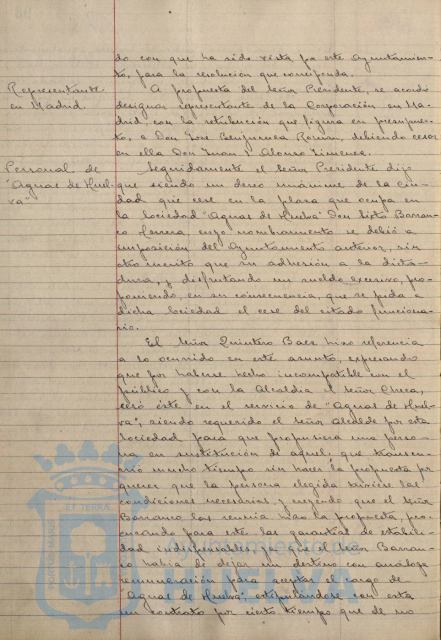 do con que ha sido vista por este Ayuntamien-
to, para la resolución que corresponda.
Representante
en Madrid.
A propuesta del Señor Presidente, se acordó
designar representante de la Corporación en Ma-
drid, con la retribución que figura en presupues-
to, a Don José Román, debiendo cesar
en ella Don Juan Alonso Jimenez.
Personal de
"Aguas de Huel-
va"
Seguidamente el Señor Presidente dijo
que siendo un deseo unánime de la ciu-
dad que cese en la plaza que ocupa en
la Sociedad "Aguas de Huelva" Don Sixto Barran-
co Herrera cuyo nombramiento se debió a
imposición del Ayuntamiento anterior, sin
otro mérito que su adhesión a la dicta-
dura, y disfrutando un sueldo excesivo, pro-
poniendo, en su consecuencia, que se pida a
dicha Sociedad el cese del citado funciona-
rio.
El Señor Quintero Baez hizo referencia
a lo ocurrido en este asunto, expresando
que por haberse hecho incompatible con el
público y con la Alcaldía el Señor
cesó éste en el servicio de "Aguas de Huel-
va", siendo requerido el Señor Alcalde por esta
Sociedad para que propusiera una perso-
na en sustitución de aquel, que transcu-
rrió mucho tiempo sin hacer la propuesta por
querer que la persona elegida tuviere las
condiciones necesarias y creyendo que el Señor
Barranco las reunía hizo la propuesta, pro-
curando para este las garantías de estabili-
dad indispensables, ya que el Señor Barran-
co había de dejar un destino con análoga
remuneración para aceptar el cargo de
"Aguas de Huelva", estipulándose con esta
un contrato por cierto tiempo que de no